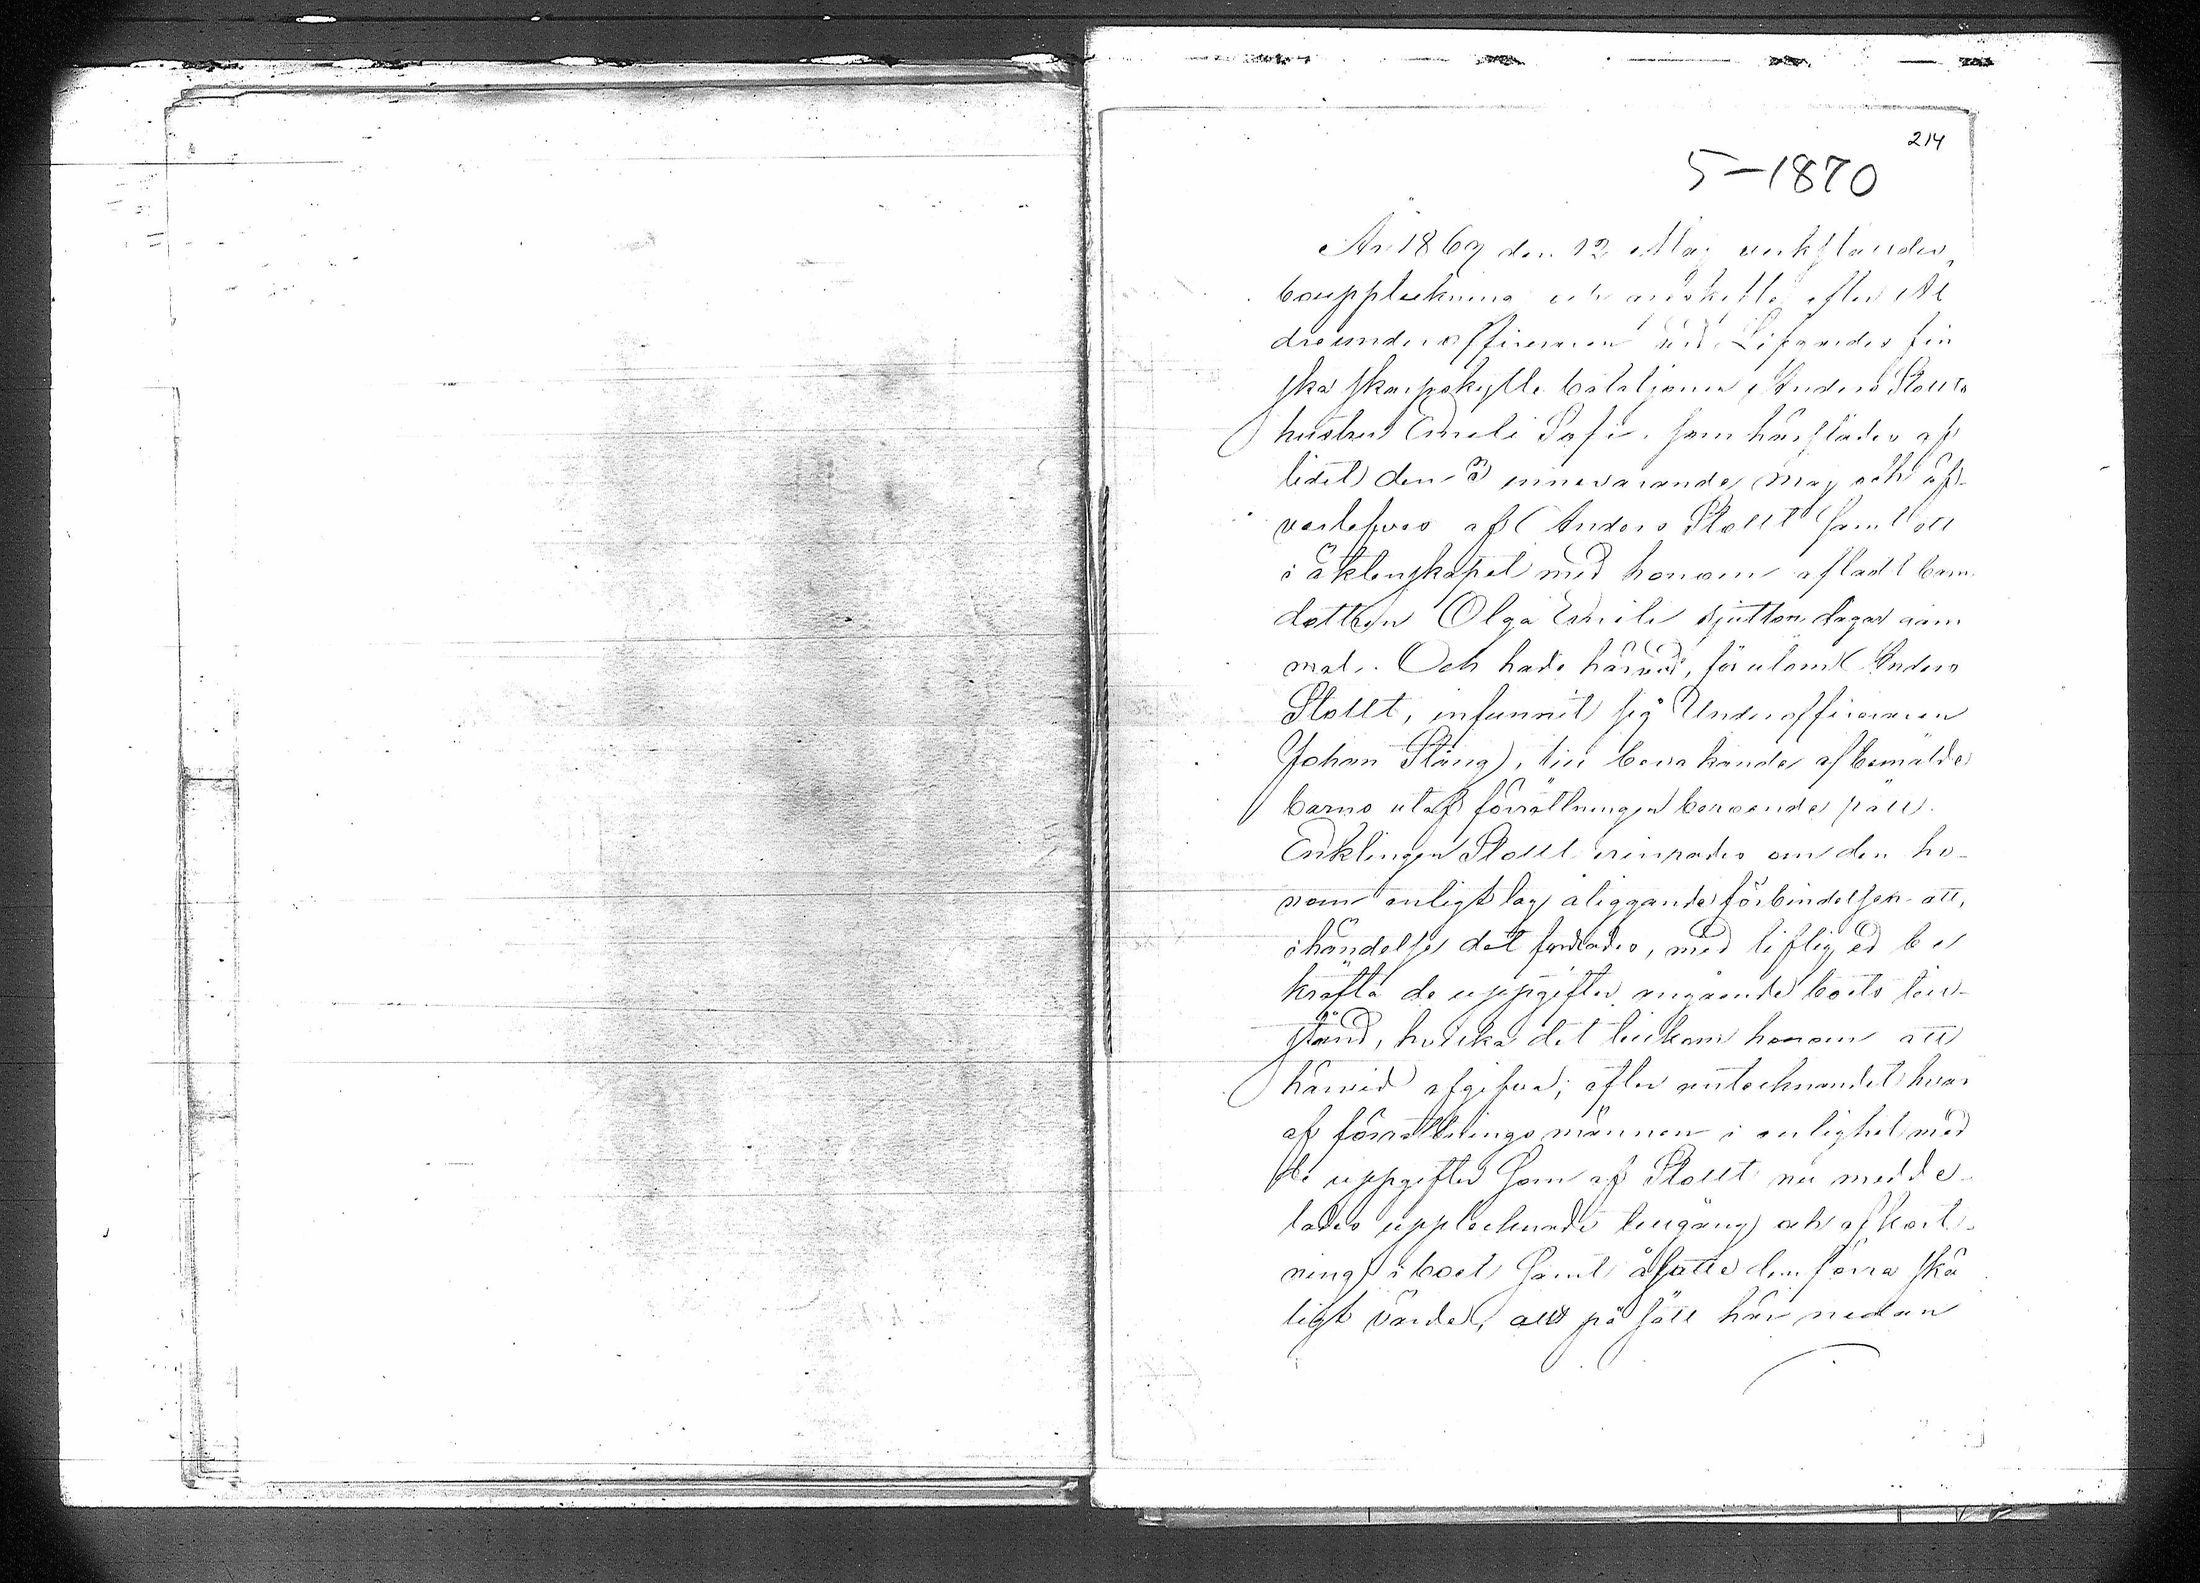 214
5-1870
År 1869 den 12 Maj verkstäldes
bouppteckning och arfskifte efter Äl
dreunderofficeraren vid Lifgardes fin
ska skarpskytte bataljonen Anders Stollts
hustru Emeli Sofi, som härstädes af
lidit den 3 innevarande Maj och öf-
verlefves af Anders Stollt samt ett
i äktenskapet med honom afladt barn
dottren Olga Emeli sjutton dagar gam
mal. Och hade härvid, förutom Anders
Stollt, infunnit sig Underofficeraren
Johan Stång, till bevakande af bemälde
barns utaf förrättningen beroende rätt.
Enklingen Stollt erinrades om den ho-
nom enligt lag åliggande förbindelsen att,
i händelse det fordrades, med liflig ed be
kräfta de uppgifter angående boets till-
stånd, hvilka det tillkom honom att
härvid afgifva; efter antecknandet hvar
af förrättningsmännen i enlighet med
de uppgifter som af Stollt nu medde-
lades upptecknade tillgång och afkort-
ning i boet samt åsatte den förra skä
ligt värde, allt på sätt här nedan